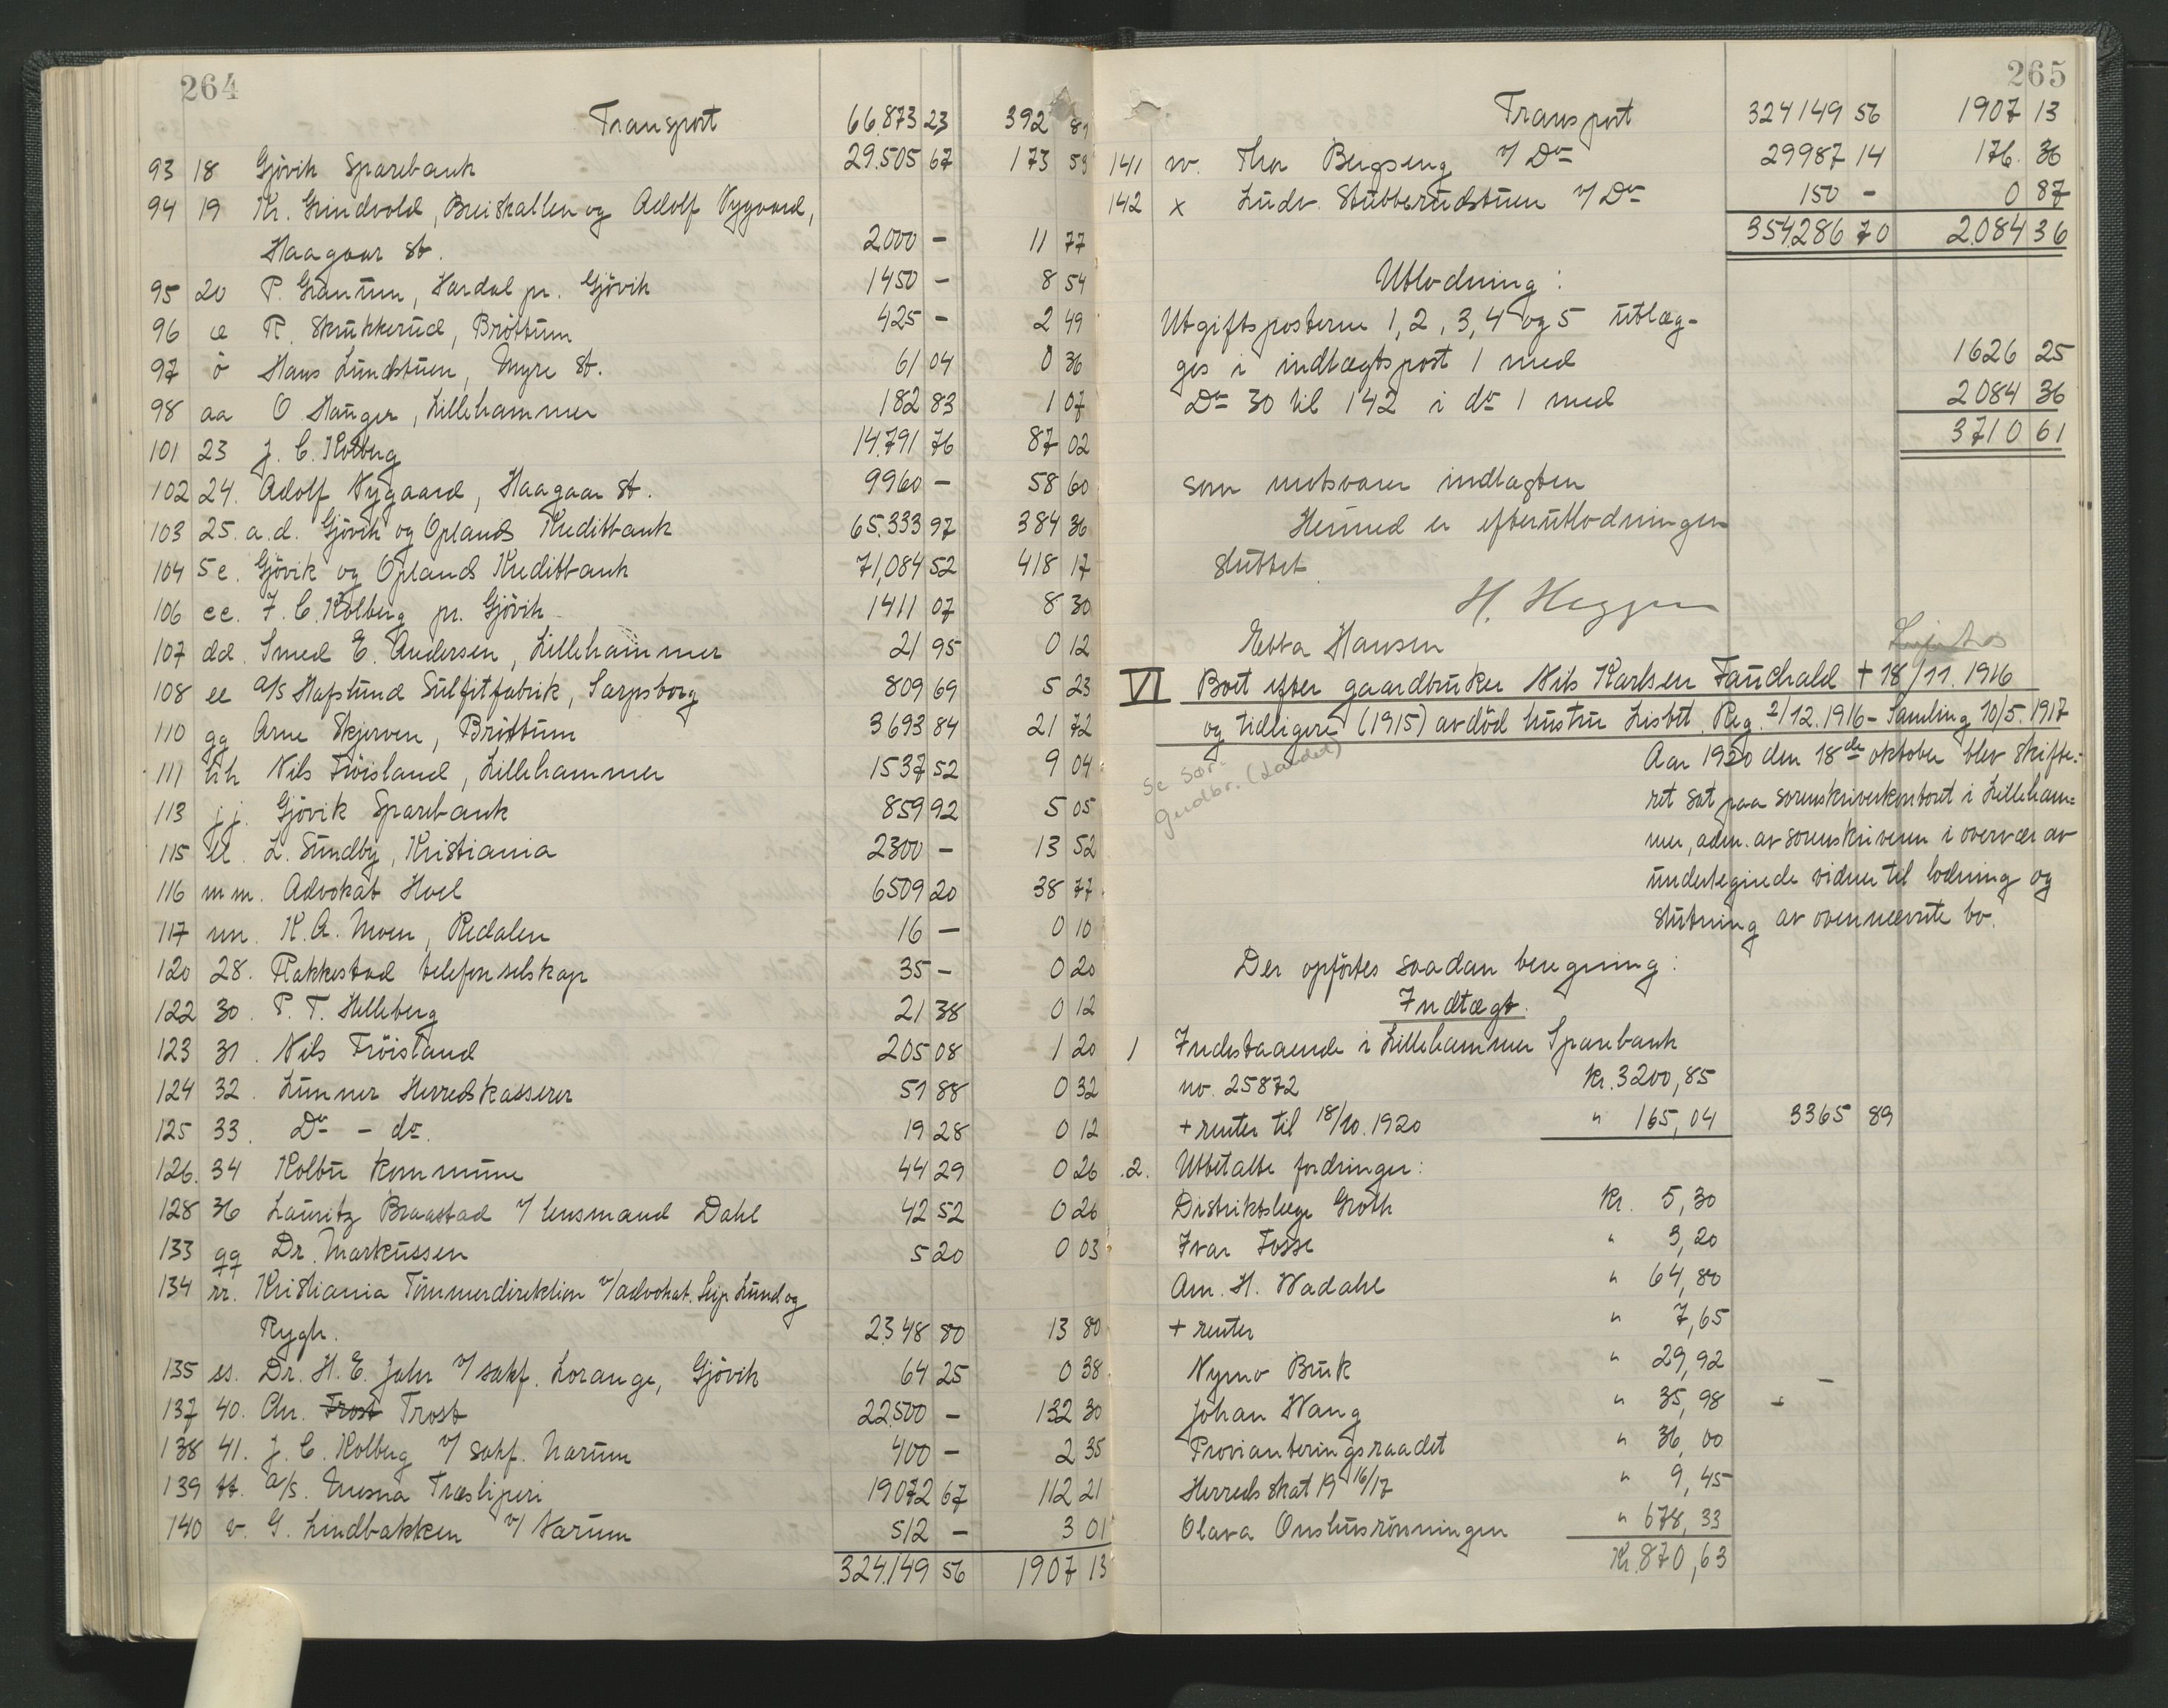 264
Transport 66.873 23 392 81
93 18 Gjövik Sparebank 29.505 67 173 59
94 19 Kr. Grindvold, Breiskallen og Adolf Nygaard,
Haagaar st. 2000 — 11 77
95 20 P. Granum, Hardal pr. Gjövik 1450 — 8 54
96 æ R. Skrukkerud, Bröttum 425 — 2 49
97 ö Hans Lundstuen, Myre st. 61 04 0 36
98 aa O Hauger, Lillehammer 182 83 1 07
101 23 J. C. Kolberg 14.791 76 87 02
102 24. Adolf Nygaard, Haagaar st. 9960 — 58 60
103 25. a.d. Gjövik og Oplands Kreditbank 65.333 97 384 36
104 5e. Gjövik og Oplands Kreditbank 71,084 52 418 17
106 cc. J. C. Kolberg pr. Gjövik 1411 07 8 30
107 dd. Smed E. Andersen, Lillehammer 21 95 0 12
108 ee a/s Hafslund Sulfitfabrik, Sarpsborg 809 69 5 23
110 gg Arne Skjerven, Bröttum 3693 84 21 72
111 hh Nils Fröisland, Lillehammer 1537 52 9 04
113 jj. Gjövik Sparebank 859 92 5 05
115 ll. L. Sundby, Kristiania 2300 — 13 52
116 mm. Advokat Hoel 6509 20 38 77
117 nn. K. A. Moen, Redalen 16 — 0 10
120 28. Rakkestad telefonselskap 35 — 0 20
122 30. P. T. Helleberg 21 38 0 12
123 31. Nils Fröisland 205 08 1 20
124 32. Lunner Herredskasserer 51 88 0 32
125 33. Do — do. 19 28 0 12
126. 34 Kolbu kommune 44 29 0 26
128 36 Lauritz Braastad v/ lensmand Dahl 42 52 0 26
133 qq Dr. Markussen 5 20 0 03
134 rr. Kristiania Tömmerdirektion v/advokat. Seip Lund og
Rygh. 2348 80 13 80
135 ss. Dr. H. E. Jahr v/ sakf. Lorange, Gjövik 64 25 0 38
137 40. An. Trost Trost 22500 — 132 30
138 41. J. C. Kolberg v/ sakf. Narum 400 — 2 35
139 tt. a/s. Mesna Træsliperi 19072 67 112 21
140 v. G. Lindbakken v/ Narum 512 — 3 01
324.149 56 1907 13
265
Transport 324149 56 1907 13
141 w. Thor Bergseng v/ Do 29987 14 176. 36
142 x Ludv. Stubberudstuen v/ Do 150 — 0 87
354,286 70 2.084 36
Utlodning:
Utgiftsposterne 1, 2, 3, 4 og 5 utlæg-
ges i indtægtspost 1 med 1626 25
Do 30 til 142 i do 1 med 2084 36
3710 61
som motsvarer indtægten
Hermed er efterutlodningen
sluttet.
H. Heggen
Ebba Hansen
VI Boet efter gaardbruker Nils Karlsen Fauchald + 18/11. 1916
og tidligere (1915) avdöd hustru Lisbet. Reg. 2/12. 1916 – Samling 10/5. 1917
Se Sør-
Gudbr. (Landet)
Aar 1920 den 18de oktober blev skifte-
ret sat paa sorenskriverkontoret i Lilleham-
mer, adm. av sorenskriveren i overvær av
undertegnede vidner til lodning og
slutning av ovennævnte bo.
Der opförtes saadan beregning:
Indtægt.
1 Indestaaende i Lillehammer Sparebank
no. 25872 Kr. 3200,85
+ renter til 18/10. 1920 " 165,04 3365 89
2. Utbetalte fordringer:
Distriktslæge Groth Kr. 5,30
Ivar Fosse " 3,20
Am. H. Wadahl " 64,80
+ renter " 7,65
Nymo Bruk " 29,92
Johan Wang " 35,98
Provianteringsraadet " 36,00
Herredsskat 19 16/17 " 9,45
Olava Onshusrönningen " 678,33
Kr. 870,63